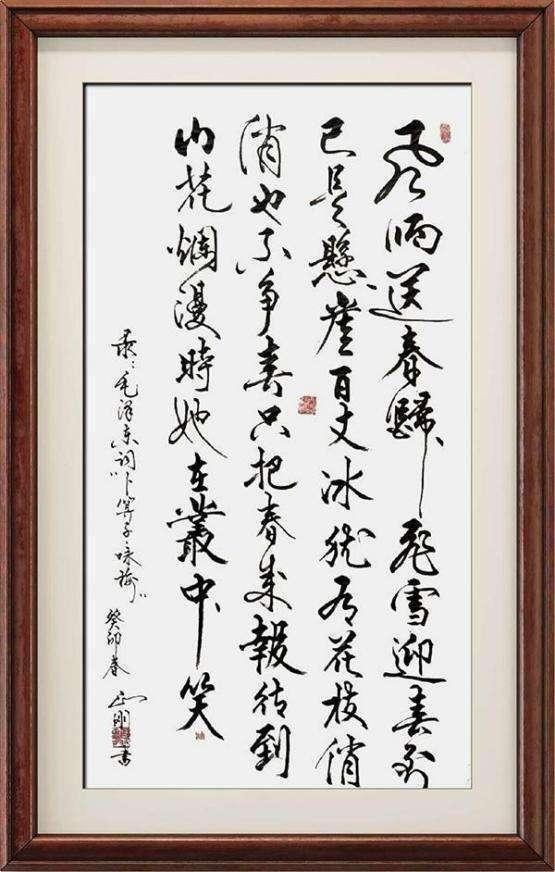 风雨送春歸飛雪迎春到
已是懸崖百丈冰犹有花枝俏
俏也不争春只把春来報待到
山花爛漫時她在叢中笑
录:毛泽东词"卜算子·咏梅"癸卯春 书